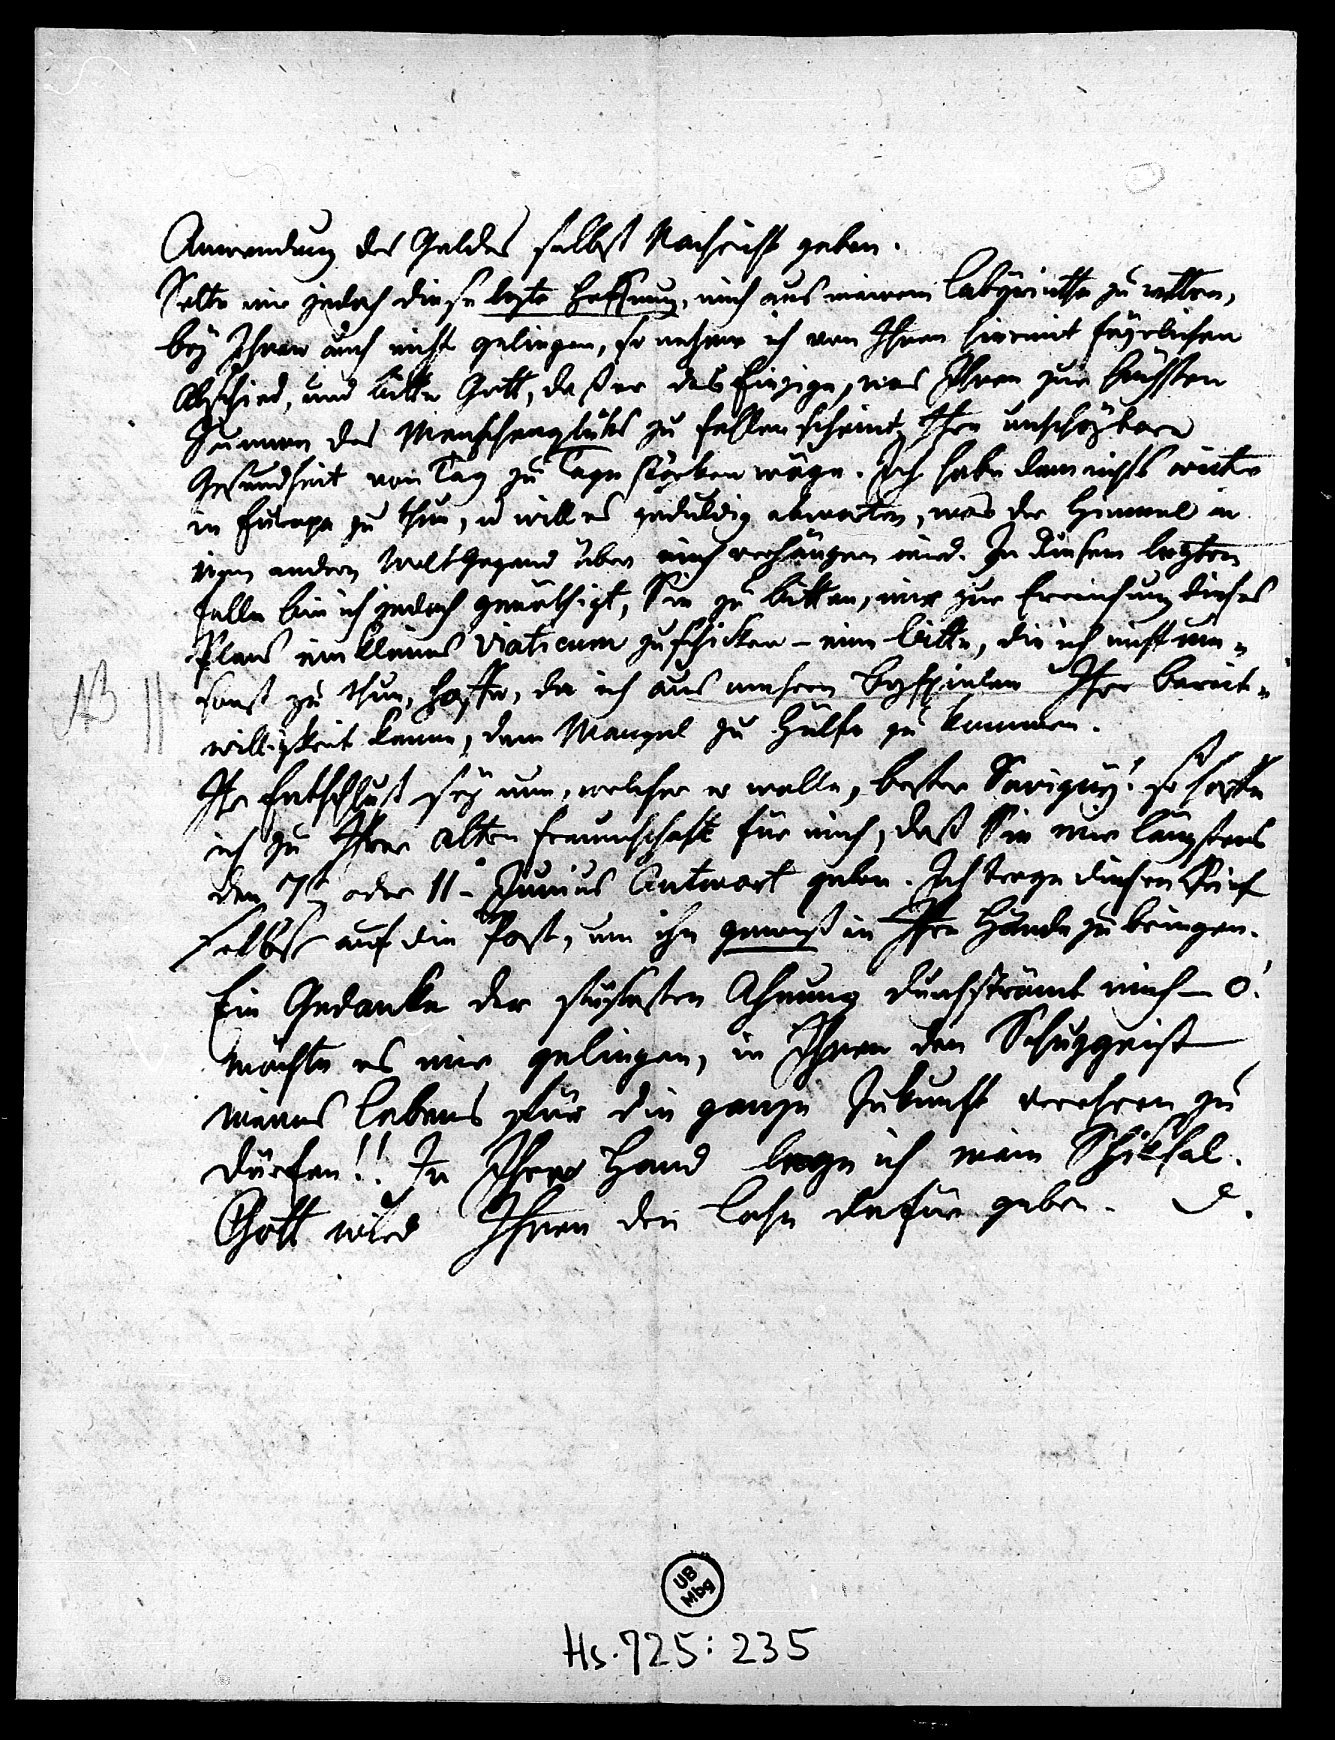 Anwendung des Geldes selbst Nachricht geben.
Sollte mir jedoch diese lezte Hoffnung, mich aus meinem Labÿrinthe zu retten,
beÿ Ihnen auch nicht gelingen, so nehme ich von Ihnen hiermit feyerlichen
Abschied, und bitte Gott, daß er das Einzige, was Ihnen zur höchsten
Summe des Menschenglüks zu fehlen scheint, Ihre unschäzbare
Gesundheit von Tag zu Tage stärken möge. Ich habe dann nichts weiter
in Europa zu thun, u will es geduldig abwarten, was der Himmel in
einer andern Welt Gegend über mich verhängen wird. In diesem lezten
Falle bin ich jedoch genöthigt, Sie zu bitten, mir zur Erreichung dieses
Plans ein kleines Viaticum zu schicken – eine Bitte, die ich nicht um-
sonst zu thun, hoffe, da ich aus mehrern Beyspielen Ihre Bereit-
willigkeit kenne, dem Mangel zu Hülfe zu kommen.
NB
Ihr Entschluß seÿ nun, welcher er wolle, bester Savignÿ! so hoffe
ich zu Ihrer alten Freundschaft für mich, daß Sie mir längstens
den 7t oder 11– Junius Antwort geben. Ich trage diesen Brief
selbst auf die Post, um ihn gewiß in Ihre Hände zu bringen.
Ein Gedanke der süßesten Ahnung durchströmt mich – O!
möchte es mir gelingen, in Ihnen den Schutzgeist
meines Lebens für die ganze Zukunft verehren zu
dürfen!! In Ihre Hand lege ich mein Schiksal.
Gott wird Ihnen den Lohn dafür geben. D.
UB
Mbg
Hs. 725: 235